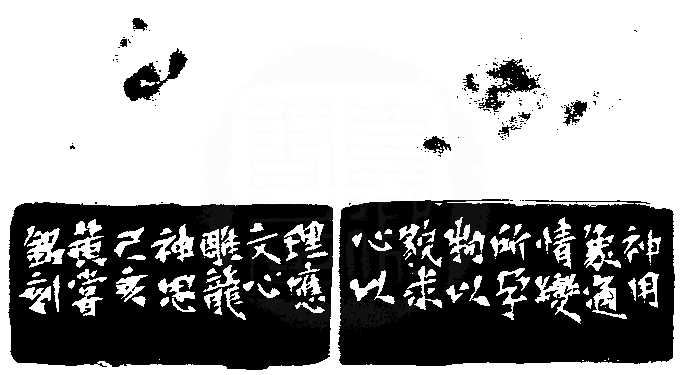 神用
象通
情變
所孕
物以
貌求
心以
理應
文心
雕龍
神思
己亥
嘗
刻